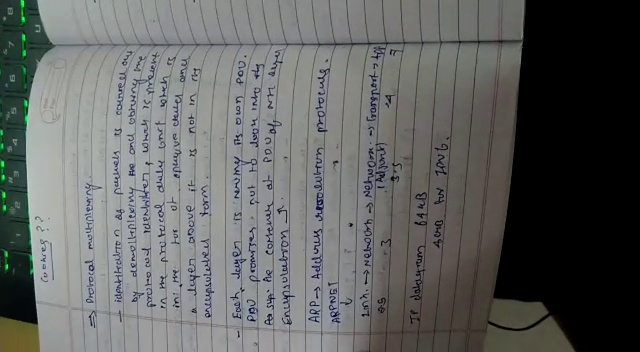 Cookies ??
⇒ Protocol multiplexing.
– Identification of packets is carried out
by demultiplexing and observing the
protocol identifier, which is present
in the protocol data unit which is
in the for of opaque data and
a layer above it is not in its
encapsulated form.
– Each layer is having its own PDU.
PDU promises not to look into the
the container at PDU of Nth layer
Encapsulation
ARP → Address resolution protocols.
ARPNET
Link → Network → Network → Transport → App
(Adjunct)
3 3.5 4 7
IP datagram 64KB
4GB for IPV6.